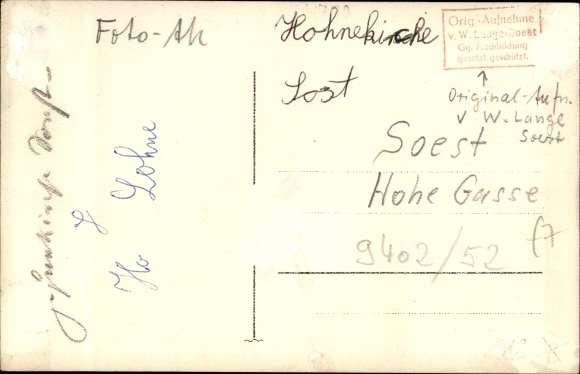 Foto-Ak
Hohnekirche
Sost
Orig.-Aufnahme
v. W. Lange-Soest
Gg. Nachbildung
gesetzl. geschützt.
↑
Original-Aufn.
v W. Lange
Soest
Soest
Hohe Gasse
9402/52
f7
Ho
Lohne